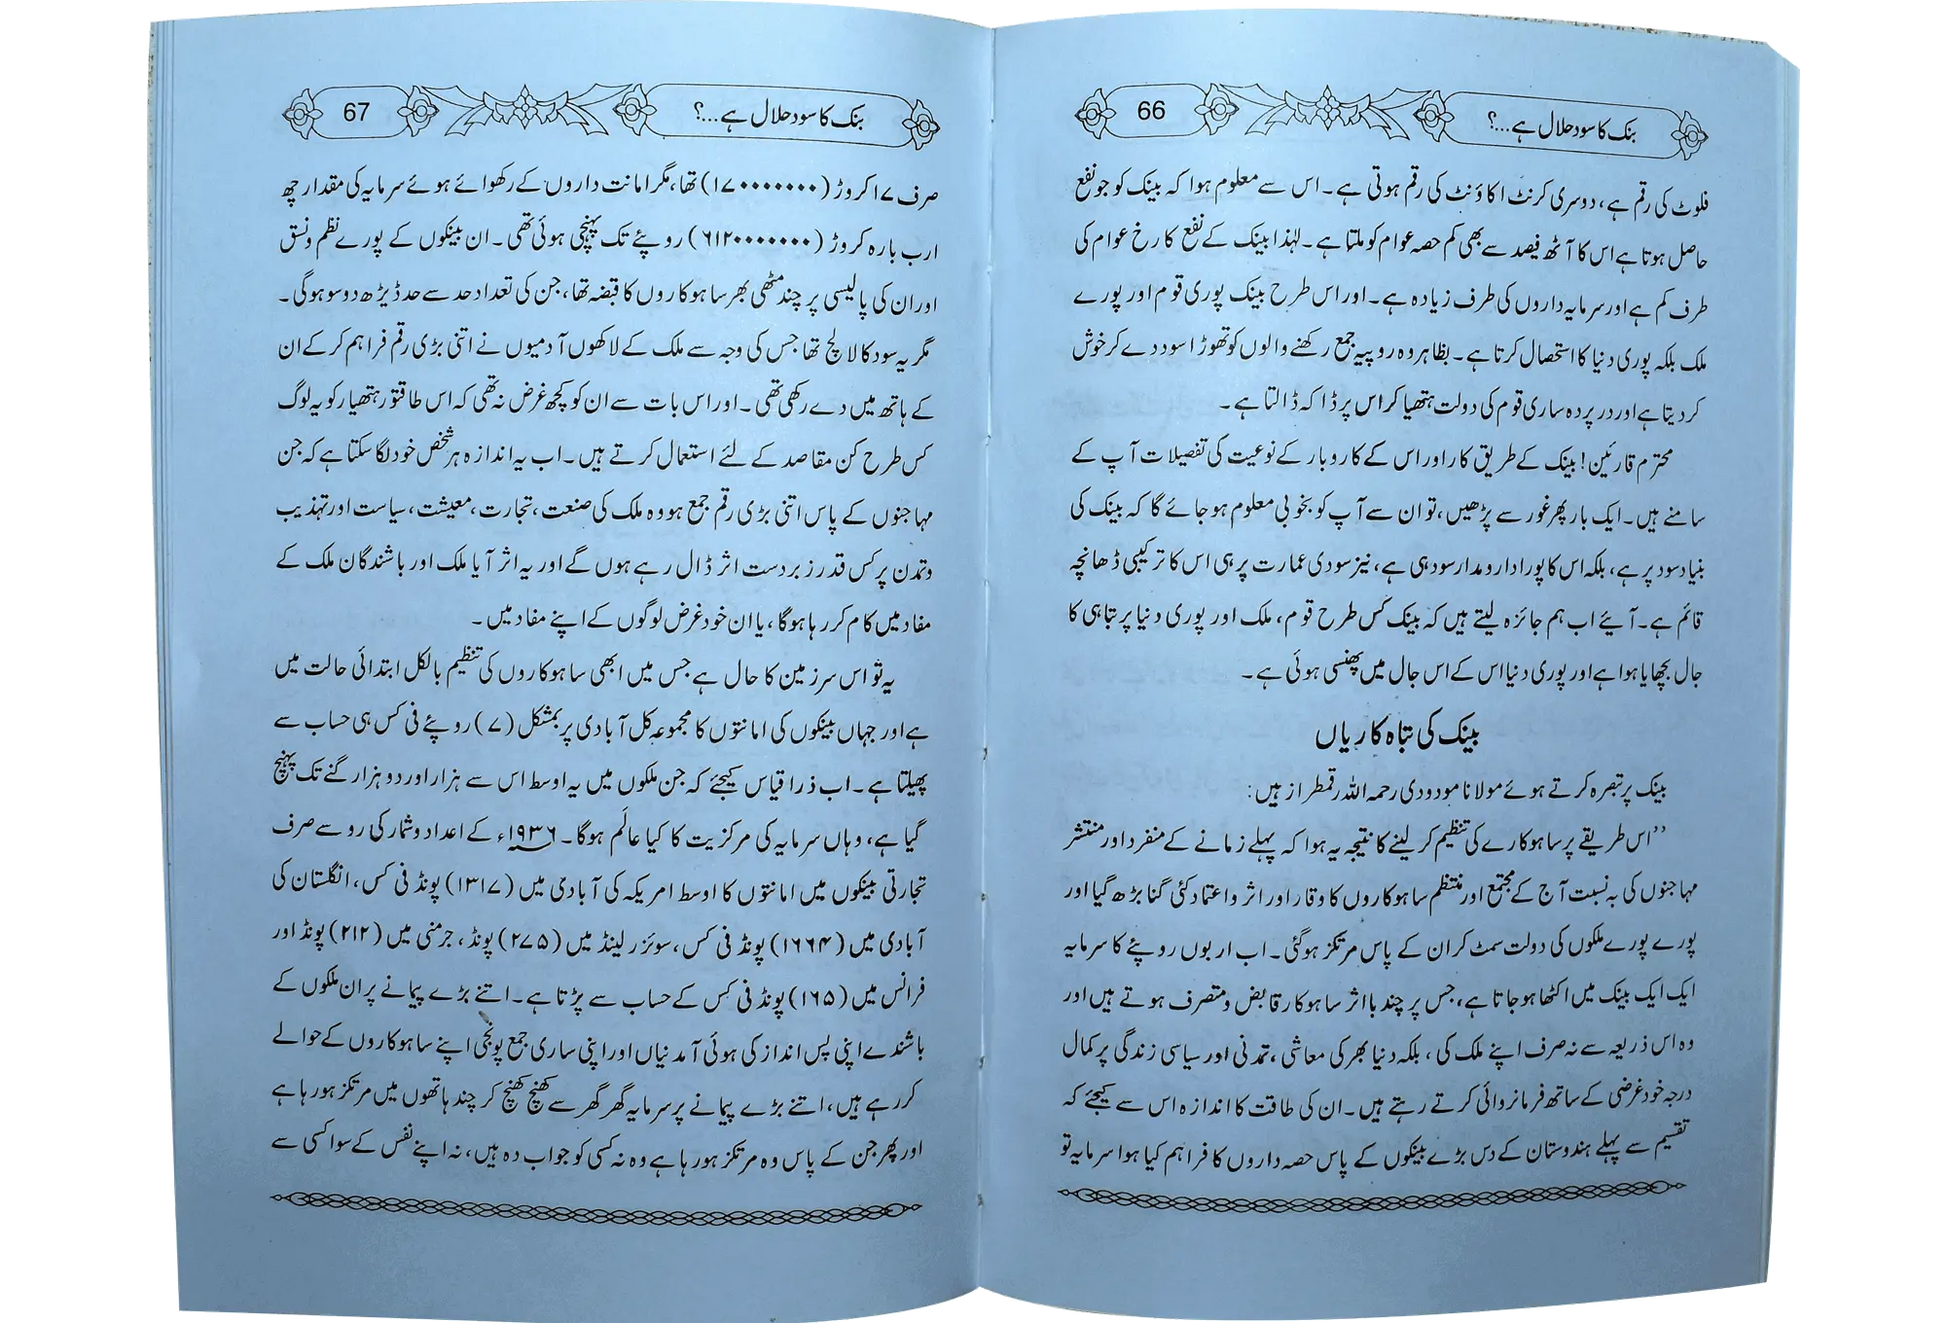 بنک کا سود حلال ہے...؟ 66
فلوٹ کی رقم ہے، دوسری کرنٹ اکاؤنٹ کی رقم ہوتی ہے۔ اس سے معلوم ہوا کہ بینک کو جو نفع
حاصل ہوتا ہے اس کا آٹھ فیصد سے بھی کم حصہ عوام کو ملتا ہے۔ لہٰذا بینک کے نفع کا رخ عوام کی
طرف کم ہے اور سرمایہ داروں کی طرف زیادہ ہے۔ اور اس طرح بینک پوری قوم اور پورے
ملک بلکہ پوری دنیا کا استحصال کرتا ہے۔ بظاہر وہ روپیہ جمع رکھنے والوں کو تھوڑا سود دے کر خوش
کر دیتا ہے اور در پردہ ساری قوم کی دولت ہتھیا کر اس پر ڈاکہ ڈالتا ہے۔
محترم قارئین! بینک کے طریق کار اور اس کے کاروبار کے نوعیت کی تفصیلات آپ کے
سامنے ہیں۔ ایک بار پھر غور سے پڑھیں، تو ان سے آپ کو بخوبی معلوم ہو جائے گا کہ بینک کی
بنیاد سود پر ہے، بلکہ اس کا پورا دارومدار سود ہی ہے، نیز سودی عمارت پر ہی اس کا ترکیبی ڈھانچہ
قائم ہے۔ آیئے اب ہم جائزہ لیتے ہیں کہ بینک کس طرح قوم، ملک اور پوری دنیا پر تباہی کا
جال بچھایا ہوا ہے اور پوری دنیا اس کے اس جال میں پھنسی ہوئی ہے۔
بینک کی تباہ کاریاں
بینک پر تبصرہ کرتے ہوئے مولانا مودودی رحمہ اللہ رقمطراز ہیں:
’’اس طریقے پر ساہوکارے کی تنظیم کر لینے کا نتیجہ یہ ہوا کہ پہلے زمانے کے منفرد اور منتشر
مہاجنوں کی بہ نسبت آج کے مجتمع اور منتظم ساہوکاروں کا وقار اور اثر واعتماد کئی گنا بڑھ گیا اور
پورے پورے ملکوں کی دولت سمٹ کر ان کے پاس مرتکز ہوگئی۔ اب اربوں روپئے کا سرمایہ
ایک ایک بینک میں اکٹھا ہو جاتا ہے، جس پر چند بااثر ساہوکار قابض ومتصرف ہوتے ہیں اور
وہ اس ذریعہ سے نہ صرف اپنے ملک کی، بلکہ دنیا بھر کی معاشی، تمدنی اور سیاسی زندگی پر کمال
درجہ خود غرضی کے ساتھ فرمانروائی کرتے رہتے ہیں۔ ان کی طاقت کا اندازہ اس سے کیجئے کہ
تقسیم سے پہلے ہندوستان کے دس بڑے بینکوں کے پاس حصہ داروں کا فراہم کیا ہوا سرمایہ تو
بنک کا سود حلال ہے...؟ 67
صرف ۱۷ کروڑ (۱۷۰۰۰۰۰۰۰) تھا، مگر امانت داروں کے رکھوائے ہوئے سرمایہ کی مقدار چھ
ارب بارہ کروڑ (۶۱۲۰۰۰۰۰۰۰) روپئے تک پہنچی ہوئی تھی۔ ان بینکوں کے پورے نظم ونسق
اور ان کی پالیسی پر چند مٹھی بھر ساہوکاروں کا قبضہ تھا، جن کی تعداد حد سے حد ڈیڑھ دو سو ہوگی۔
مگر یہ سود کا لالچ تھا جس کی وجہ سے ملک کے لاکھوں آدمیوں نے اتنی بڑی رقم فراہم کر کے ان
کے ہاتھ میں دے رکھی تھی۔ اور اس بات سے ان کو کچھ غرض نہ تھی کہ اس طاقتور ہتھیار کو یہ لوگ
کس طرح کن مقاصد کے لئے استعمال کرتے ہیں۔ اب یہ اندازہ ہر شخص خود لگا سکتا ہے کہ جن
مہاجنوں کے پاس اتنی بڑی رقم جمع ہو وہ ملک کی صنعت، تجارت، معیشت، سیاست اور تہذیب
وتمدن پر کس قدر زبردست اثر ڈال رہے ہوں گے اور یہ اثر آیا ملک اور باشندگان ملک کے
مفاد میں کام کر رہا ہوگا، یا ان خود غرض لوگوں کے اپنے مفاد میں۔
یہ تو اس سرزمین کا حال ہے جس میں ابھی ساہوکاروں کی تنظیم بالکل ابتدائی حالت میں
ہے اور جہاں بینکوں کی امانتوں کا مجموعہ کل آبادی پر بمشکل (۷) روپئے فی کس ہی حساب سے
پھیلتا ہے۔ اب ذرا قیاس کیجئے کہ جن ملکوں میں یہ اوسط اس سے ہزار اور دو ہزار گنے تک پہنچ
گیا ہے، وہاں سرمایہ کی مرکزیت کا کیا عالَم ہوگا۔ ۱۹۳۶ء کے اعداد وشمار کی رو سے صرف
تجارتی بینکوں میں امانتوں کا اوسط امریکہ کی آبادی میں (۱۳۱۷) پونڈ فی کس، انگلستان کی
آبادی میں (۱۶۶۴) پونڈ فی کس، سوئزر لینڈ میں (۲۷۵) پونڈ، جرمنی میں (۲۱۲) پونڈ اور
فرانس میں (۱۶۵) پونڈ فی کس کے حساب سے پڑتا ہے۔ اتنے بڑے پیمانے پر ان ملکوں کے
باشندے اپنی پس انداز کی ہوئی آمدنیاں اور اپنی ساری جمع پونجی اپنے ساہوکاروں کے حوالے
کر رہے ہیں، اتنے بڑے پیمانے پر سرمایہ گھر گھر سے کھنچ کھنچ کر چند ہاتھوں میں مرتکز ہو رہا ہے
اور پھر جن کے پاس وہ مرتکز ہو رہا ہے وہ نہ کسی کو جواب دہ ہیں، نہ اپنے نفس کے سوا کسی سے